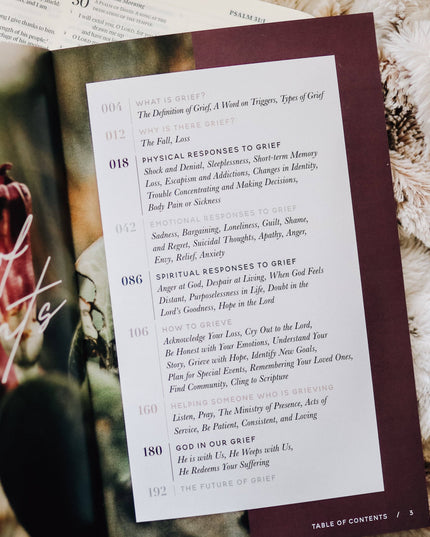 30
Morning
A PSALM OF DAVID. A SONG AT THE
DEDICATION OF THE TEMPLE.
I will exalt you, O LORD, for
PSALM 31:1
004 WHAT IS GRIEF?
The Definition of Grief, A Word on Triggers, Types of Grief
012 WHY IS THERE GRIEF?
The Fall, Loss
018 PHYSICAL RESPONSES TO GRIEF
Shock and Denial, Sleeplessness, Short-term Memory
Loss, Escapism and Addictions, Changes in Identity,
Trouble Concentrating and Making Decisions,
Body Pain or Sickness
042 EMOTIONAL RESPONSES TO GRIEF
Sadness, Bargaining, Loneliness, Guilt, Shame,
and Regret, Suicidal Thoughts, Apathy, Anger,
Envy, Relief, Anxiety
086 SPIRITUAL RESPONSES TO GRIEF
Anger at God, Despair at Living, When God Feels
Distant, Purposelessness in Life, Doubt in the
Lord's Goodness, Hope in the Lord
106 HOW TO GRIEVE
Acknowledge Your Loss, Cry Out to the Lord,
Be Honest with Your Emotions, Understand Your
Story, Grieve with Hope, Identify New Goals,
Plan for Special Events, Remembering Your Loved Ones,
Find Community, Cling to Scripture
160 HELPING SOMEONE WHO IS GRIEVING
Listen, Pray, The Ministry of Presence, Acts of
Service, Be Patient, Consistent, and Loving
180 GOD IN OUR GRIEF
He is with Us, He Weeps with Us,
He Redeems Your Suffering
192 THE FUTURE OF GRIEF
TABLE OF CONTENTS / 3